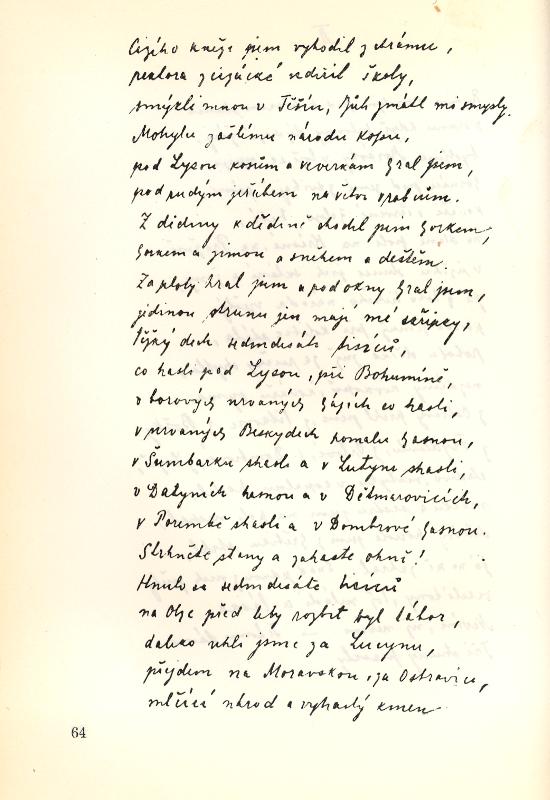 Cizího kněze jsem vyhodil z chrámu,
rektora zcizácké zdusil školy,
smýkli mnou v Těšín, Bůh zmátl mi smysly.
Mohylu zašlému národu kopu,
pod Lysou kosům a veverkám hral jsem,
pod rudým jeřábem na větvi vrabcům.
Z dědiny k dědině chodil jsem horkem,
horkem a zimou a sněhem a deštěm.
Za ploty hral jsem a pod okny hral jsem,
jedinou strunu jen mají mé skřipky,
těžký dech sedmdesáti tisíců,
co hasli pod Lysou, při Bohumíně,
v borových urvaných hájích co hasli,
v urvaných Beskydech pomalu hasnou,
v Šumbarku shasli a v Lutyni shasli,
v Datyních hasnou a v Dětmarovicích,
v Porembě shasli a v Dombrové hasnou.
Strhněte stany a zahaste ohně!
Hnulo se sedmdesáte tisíců
na Olze před lety rozbit byl tábor,
daleko uhli jsme za Lucynu,
přejdem na Moravskou, za Ostravici,
mlčící národ a vyhaslý kmen.
64